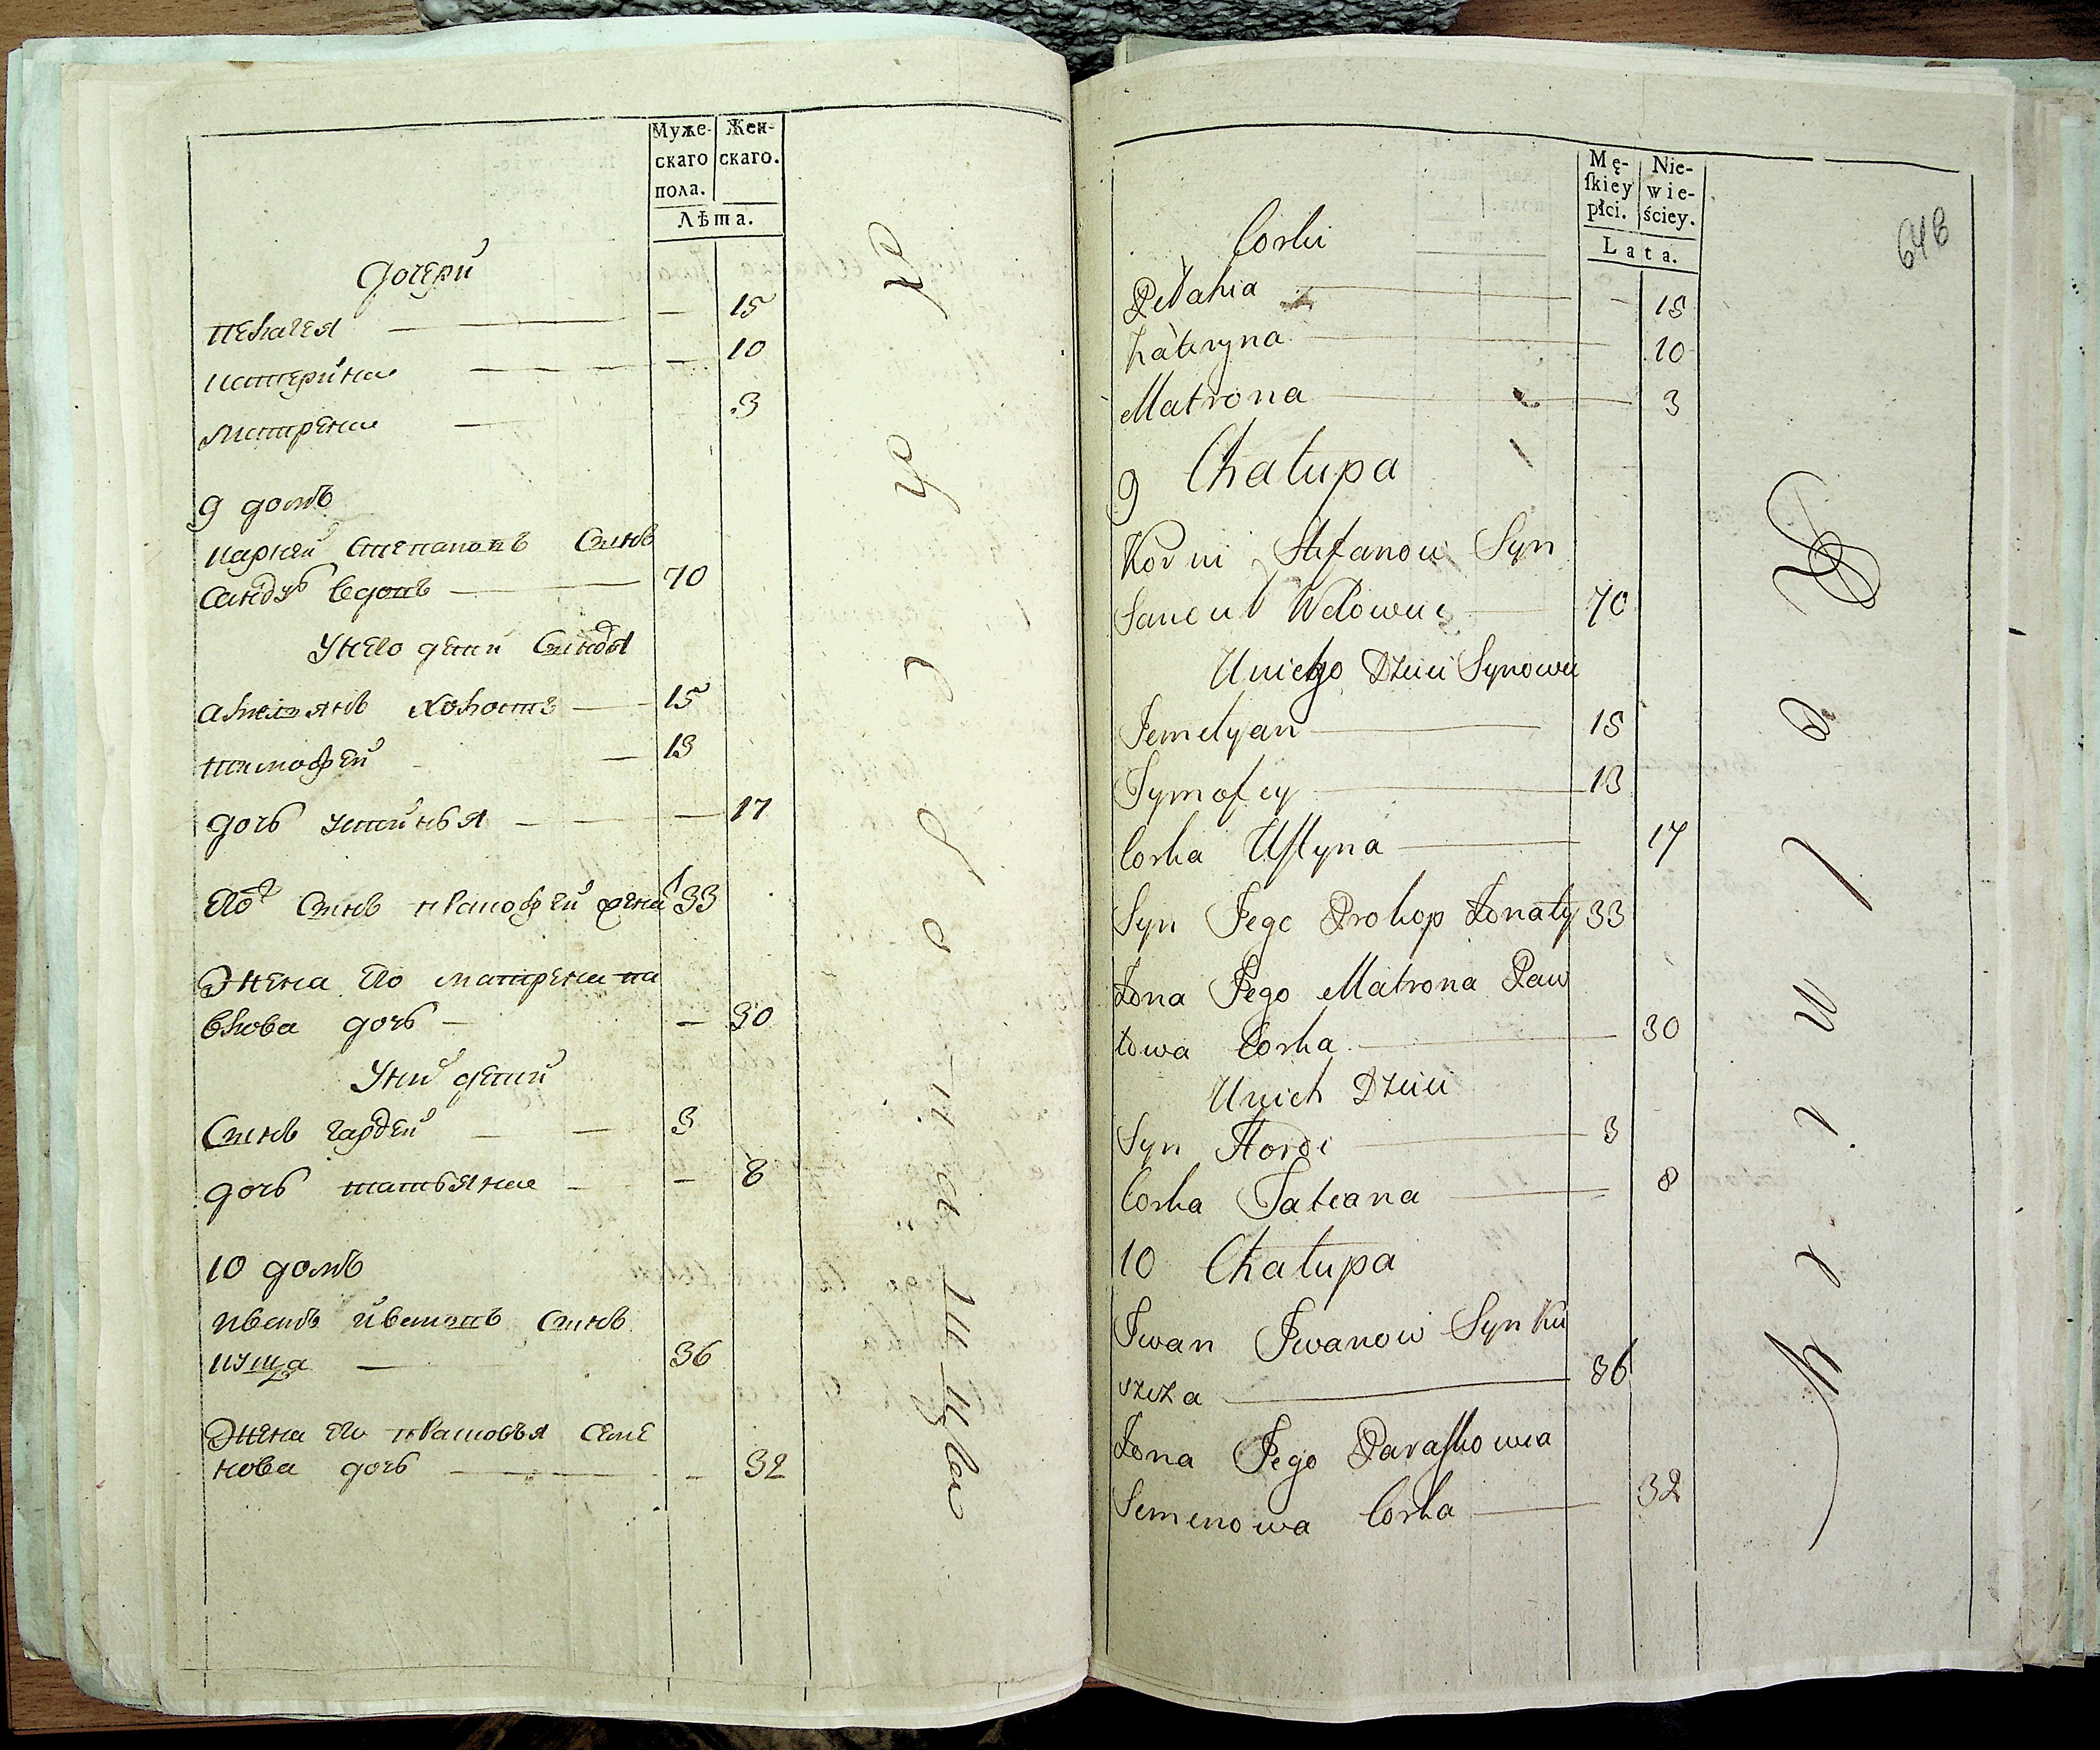 Муже-
скаго
пола.
Жен-
скаго.
Лѣта.
дочери
пелагея — 15
катерина — 10
матрена — 3
9 домъ
карней степановъ сынъ
70
У него дети сыновья
холостъ — 15
тимофей — 13
дочь устинья — 17
его сынъ 33
жена его матрена па
влова дочь — 30
У них дети
сынъ гардей — 3
дочь татьяна — 8
10 домъ
иванъ ивановъ сынъ
куща — 36
жена его парасковья семе
нова дочь — 32
Mę-
ſkiey
płci.
Nie-
wie-
ściey.
Lata.
64в
Corki
Pelahia — 15
Kateryna — 10
Matrona — 3
9 Chałupa
Korni Stefanow Syn
70
U niego Dzieci Synowie
Jemelyan — 15
Tymofey — 13
Corka Ustyna — 17
Syn Jego Prokop Żonaty 33
Żona Jego Matrona Paw
łowa Corka — 30
U nich Dzieci
Syn Hordi — 3
Corka Tatiana — 8
10 Chałupa
Iwan Iwanow Syn Ku
szcza — 36
Żona Jego Paraskowia
Semenowa Corka — 32